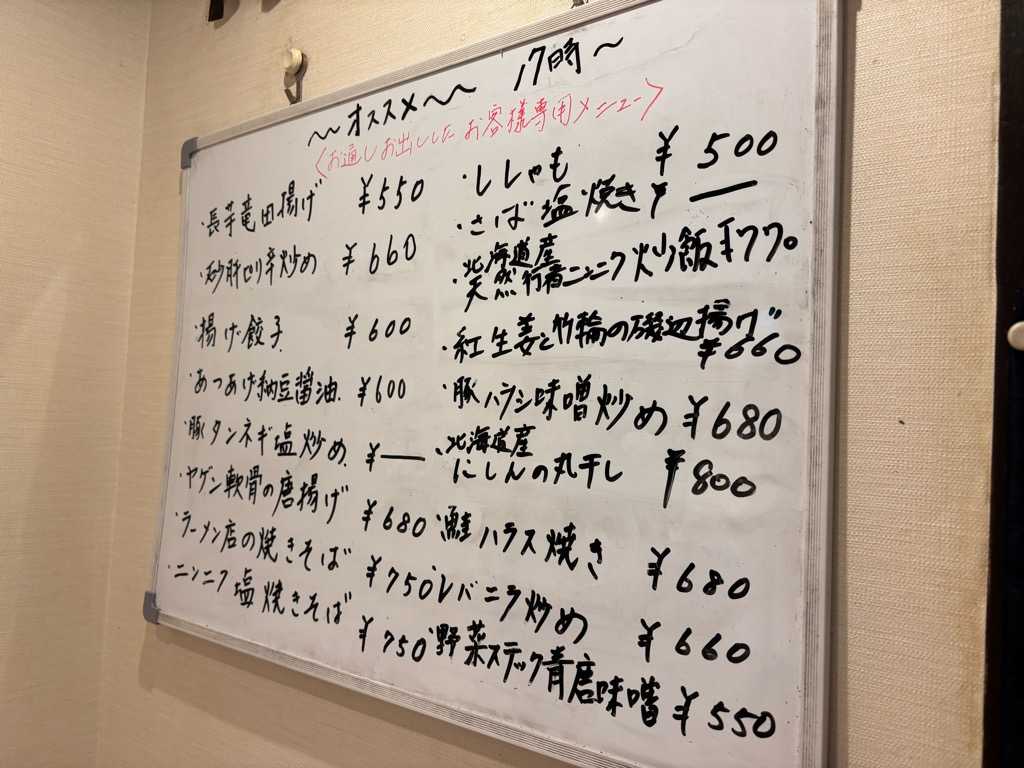 〜オススメ〜 17時〜
〈お通しお出しした お客様専用メニュー〉
・長芋竜田揚げ ¥550
・砂肝ピリ辛炒め ¥660
・揚げ餃子 ¥600
・あつあげ納豆醤油 ¥600
・豚タンネギ塩炒め ¥—
・ヤゲン軟骨の唐揚げ ¥680
・ラーメン店の焼きそば ¥750
・ニンニク塩焼きそば ¥750
・ししゃも ¥500
・さば塩焼き ¥—
・北海道産
天然行者ニンニク炒飯 ¥770
・紅生姜と竹輪の磯辺揚げ
¥660
・豚ハラシ味噌炒め ¥680
・北海道産
にしんの丸干し ¥800
・鮭ハラス焼き ¥680
・レバニラ炒め ¥660
・野菜スティック青唐味噌 ¥550